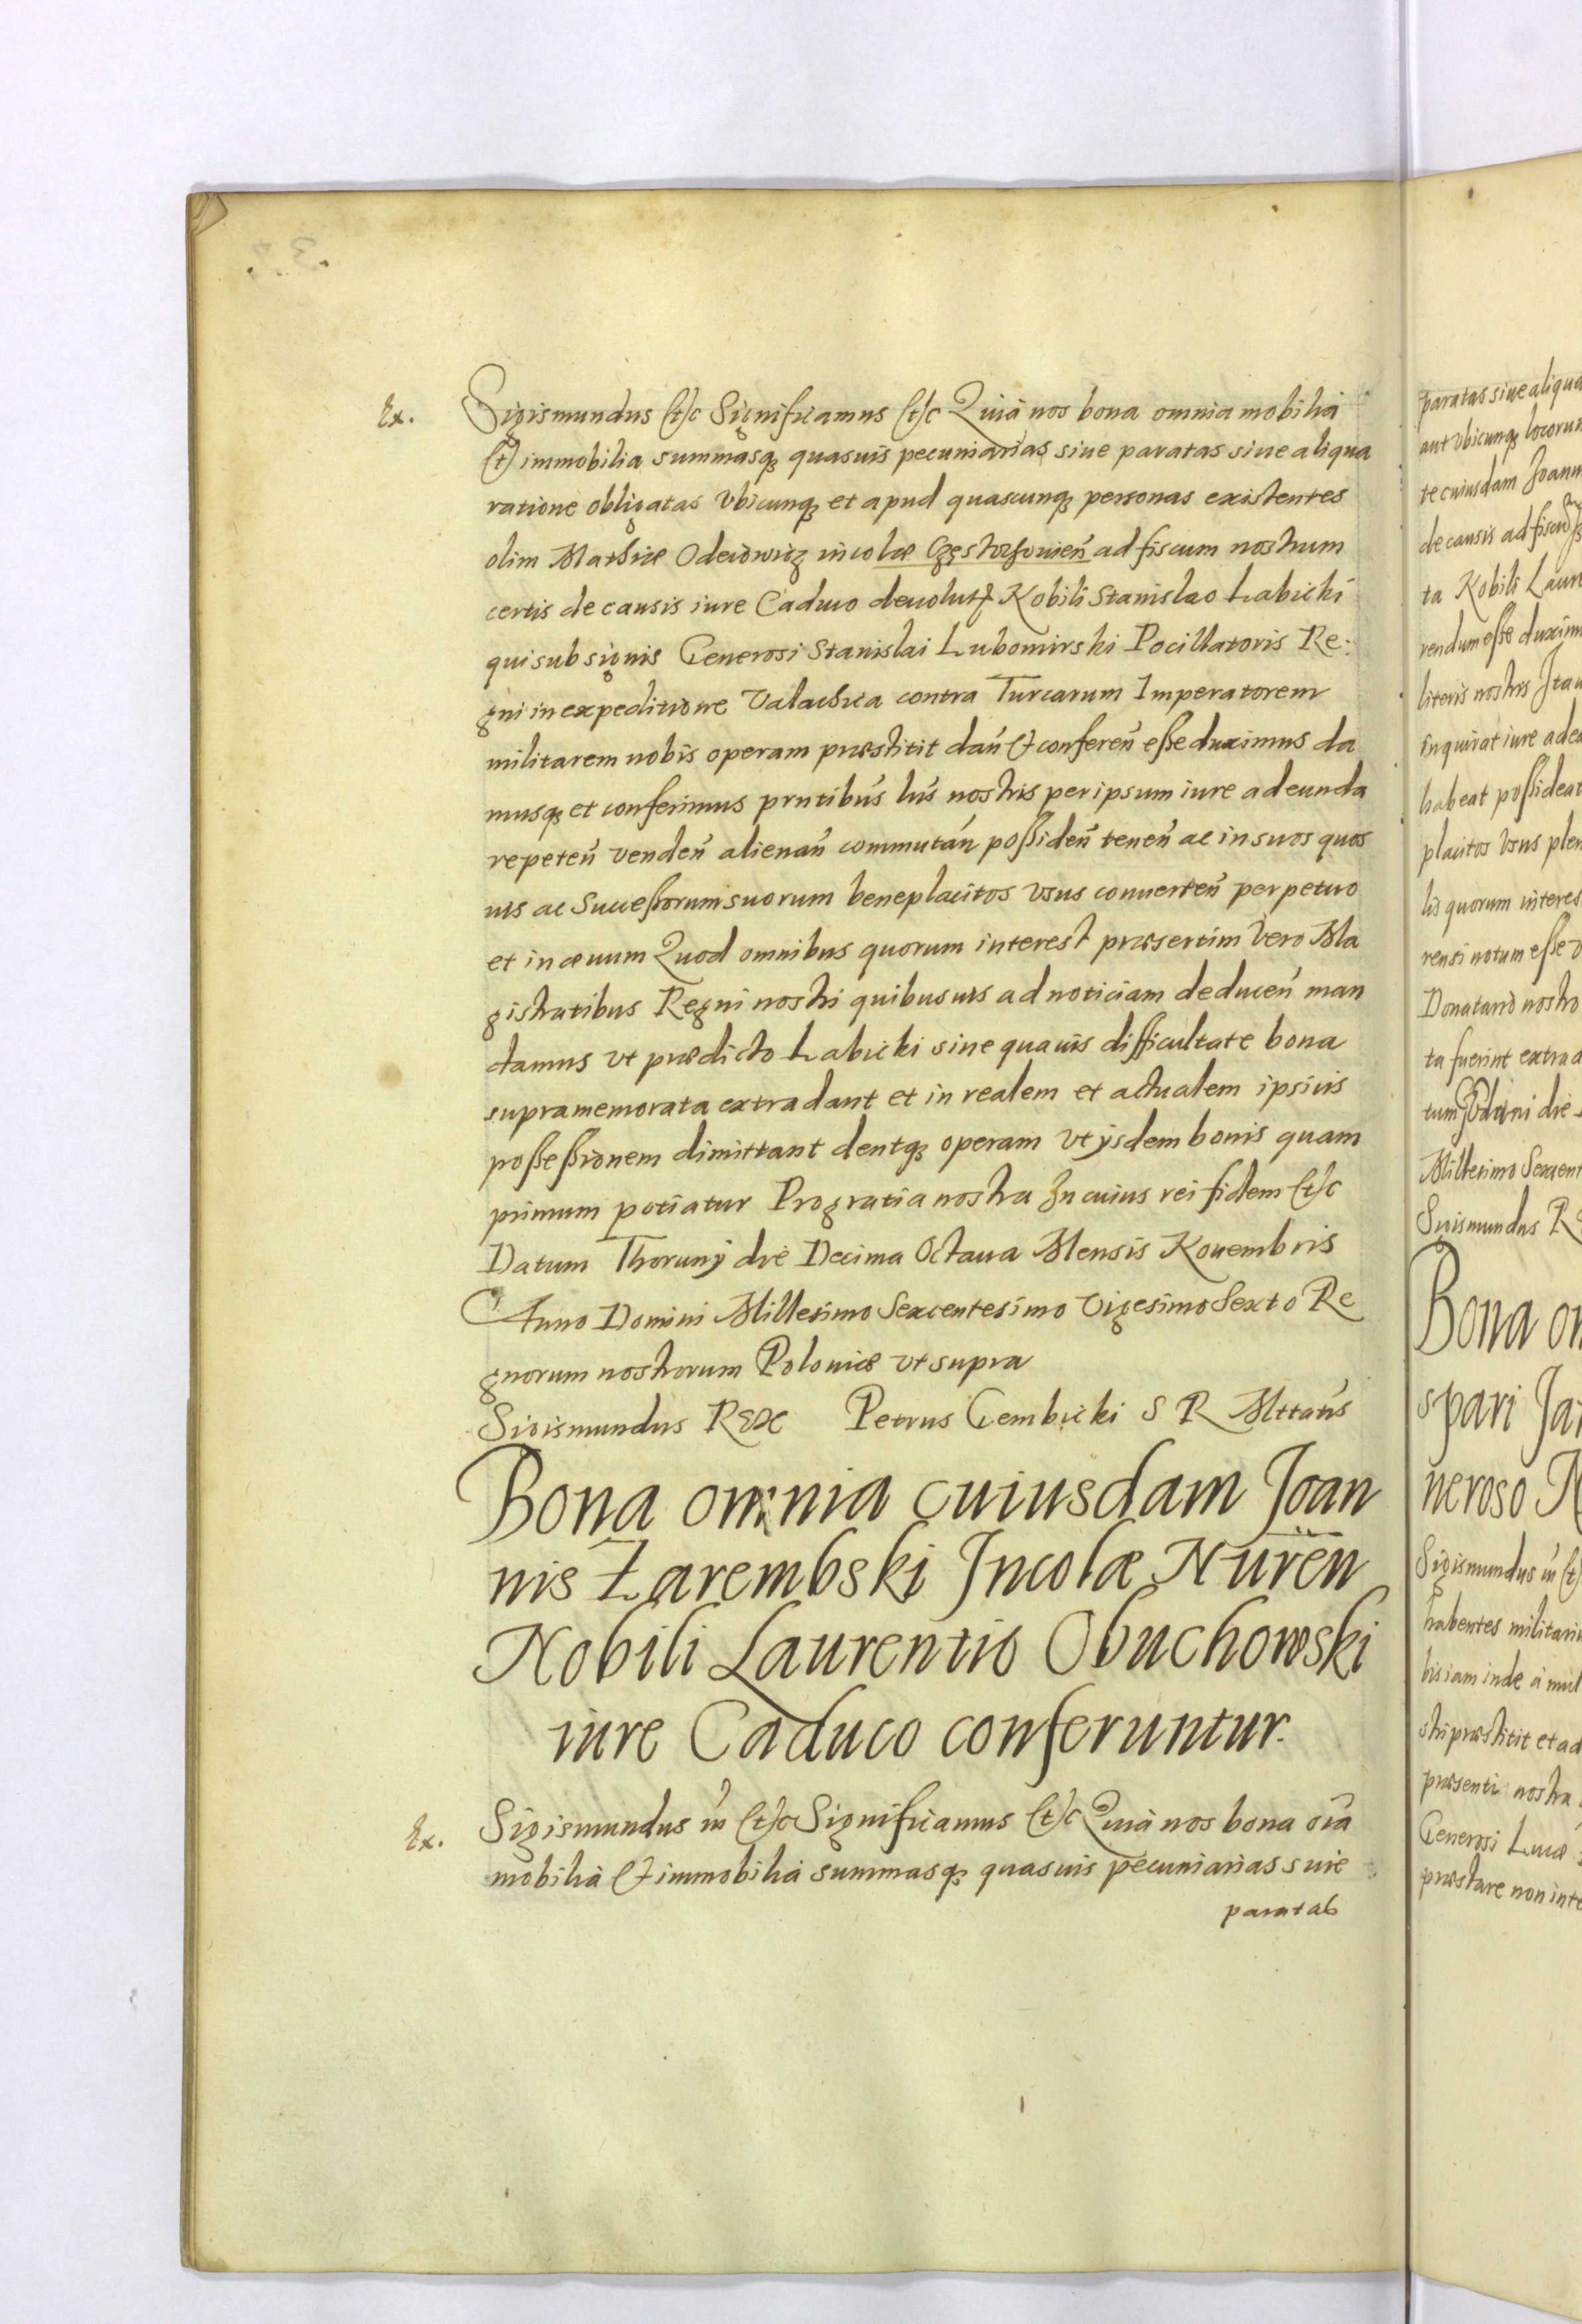 Ex.
Sigismundus etc Significamus etc Quia nos bona omnia mobilia
et immobilia summasq quasuis pecuniarias siue paratas siue aliqua
ratione obligatas vbicunq et apud quascunq personas existentes
olim Mathiæ incolæ Częstochouieñ ad fiscum nostrum
certis de causis iure Caduco deuolut Nobili Stanislao Labicki
qui sub signis Generosi Stanislai Lubomirski Pocillatoris Re:
gni in expeditione Valachica contra Turcarum Imperatorem
militarem nobis operam præstitit dañ et confereñ eße duximus da
musq et conferimus prntibus lris nostris per ipsum iure adeunda
repeteñ vendeñ alienañ commutañ poßideñ teneñ ac in suos quos
uis ac Succeßorum suorum beneplacitos vsus conuerteñ perpetuo
et in æuum Quod omnibus quorum interest præsertim vero Ma
gistratibus Regni nostri quibusuis ad noticiam deduceñ man
damus vt prædicto Labicki sine quauis difficultate bona
supramemorata extradant et in realem et actualem ipsius
poßeßionem dimittant dentq operam vt ijsdem bonis quam
primum potiatur Pro gratia nostra In cuius rei fidem etc
Datum Thorunij die Decima Octaua Mensis Nouembris
Anno Domini Millesimo Sexcentesimo Vigesimo Sexto Re
gnorum nostrorum Poloniæ vt supra
Sigismundus Rex Petrus Gembicki S R Mttatis
Bona omnia cuiusdam Joan
nis Zarembski Incolæ Nureñ
Nobili Laurentio Obuchowski
iure Caduco conferuntur.
Ex.
Sigismundus III etc Significamus etc Quia nos bona oia
mobilia et immobilia summasq quasuis pecuniarias siue
paratas
paratas siue aliqua
aut vbicunq locorum
te cuiusdam Joann
de causis ad fiscu
ta Nobili Laure
rendum eße duxim
literis nostris Ita v
inquirat iure adea
habeat poßideat
placitos vsus plen
lis quorum interes
rensi notum eße v
Donatario nostro
ta fuerint extra a
tum die
Millesimo Sexcent
Sigismundus R
Bona om
spari Jar
neroso N
Sigismundus III et
habentes militari
bis iam inde a mul
stri præstitit et ad
præsenti nostra
Generosi Lucæ
præstare non inte